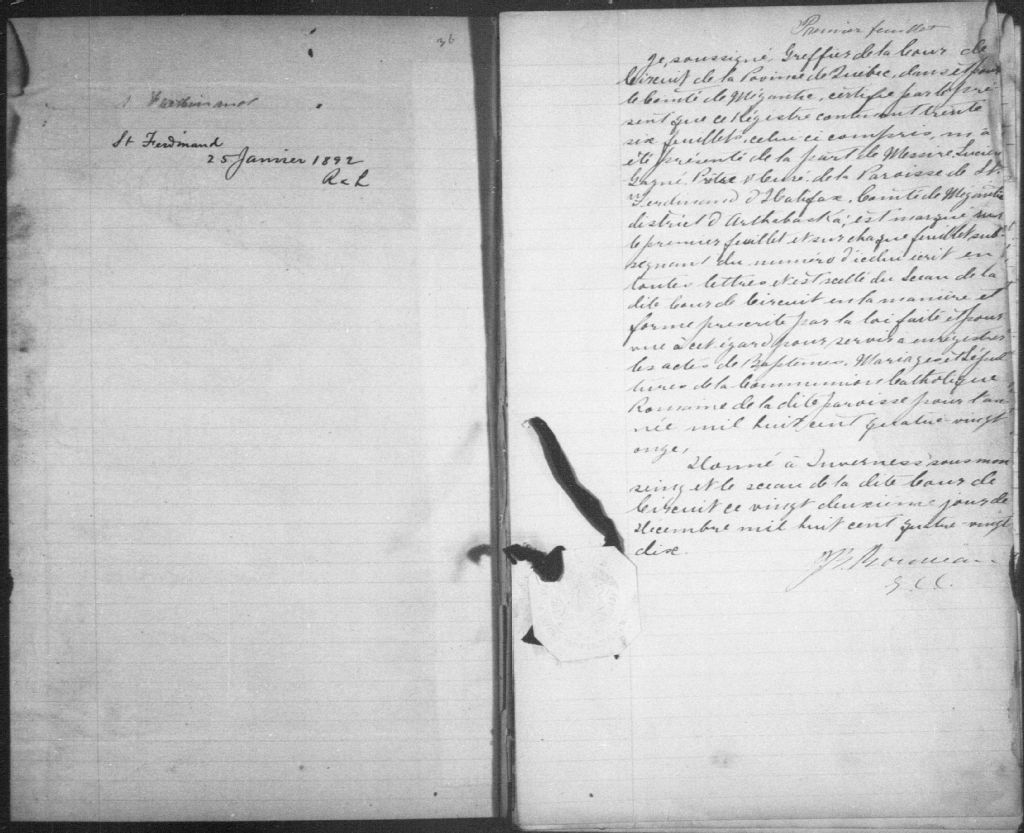 36
St Ferdinand
25 Janvier 1892
Premier feuillet
Je, soussigné, Greffier de la Cour de
Circuit de la Province de Québec, dans et pour
le Comté de Mégantic, certifie par le pré
sent que ce Régistre contenant trente
six feuillets, celui ci compris, m'a
été présenté de la part de Messire Lucien
Gagné, Prêtre & Curé de la Paroisse de St.
Ferdinand d'Halifax, Comté de Mégantic
district d'Arthabaska, est marqué sur
le premier feuillet et sur chaque feuillet sub-
séquant du numéro d'icelui écrit en
toutes lettres et est scellé du Sceau de la
dite Cour de Circuit en la manière et
forme prescrite par la loi faite et pour
vue à cet égard pour servir a enrégistrer
les actes de Baptêmes, Mariages et Sépul
tures de la Communion Catholique
Romaine de la dite paroisse pour l'an-
née mil huit cent quatre-vingt
onze,
Donné à Inverness sous mon
seing et le sceau de la dite Cour de
Circuit ce vingt deuxième jour de
Décembre mil huit cent quatre-vingt
dix.
G.C.C.